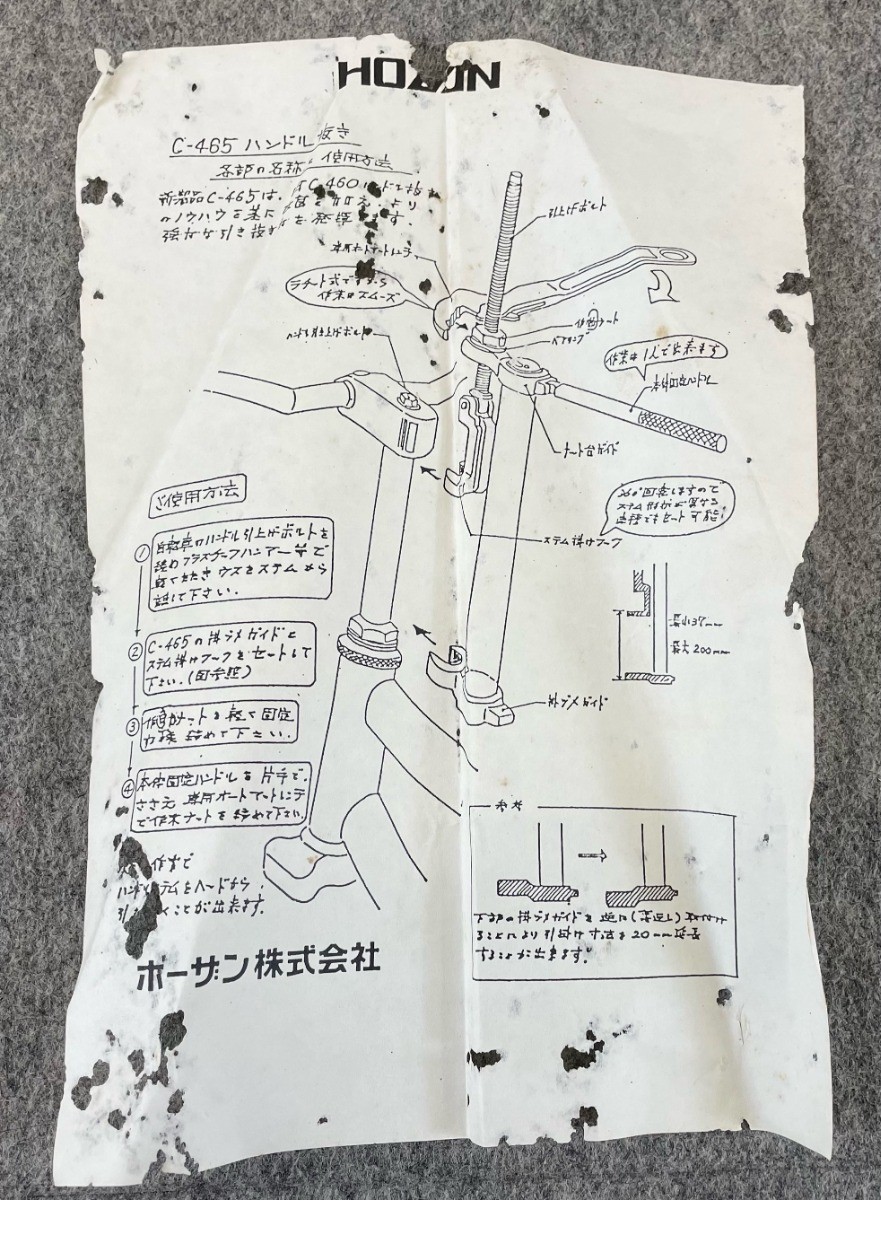 HOZAN
C-465 ハンドル抜き
各部の名称・使用方法
新製品C-465は、C-460
ノウハウを基に を発揮 ます。
強力な引き抜き
引上げボルト
ラチェット式ですから
作業はスムーズ
ハンドル引上げボルト
作動ナット
ベアリング
作業は1人で出来ます
本体固定ハンドル
ナット台ガイド
360°固定しますので
ステム形状が異なる
車種でもセット可能!
ステム掛けフック
最小37mm
最大200mm
掛ヅメガイド
使用方法
① 自転車のハンドル引上げボルトを
プラスチックハンマー等で
軽くたたき ウスをステムから
下さい.
② C-465の掛ヅメガイドと
ステム掛けフックをセットして
下さい.(図参照)
③ 作動ナットを軽く固定
締めて下さい.
④ 本体固定ハンドルを片手で.
ささえ 専用オートナットレンチ
で作動ナットを締めて下さい.
作業で
ハンドルステムをヘッドから
くことが出来ます.
ホーザン株式会社
参考
下部の掛ヅメガイドを逆に(裏返し)取付け
ることにより引掛け寸法を20mm延長
することが出来ます.